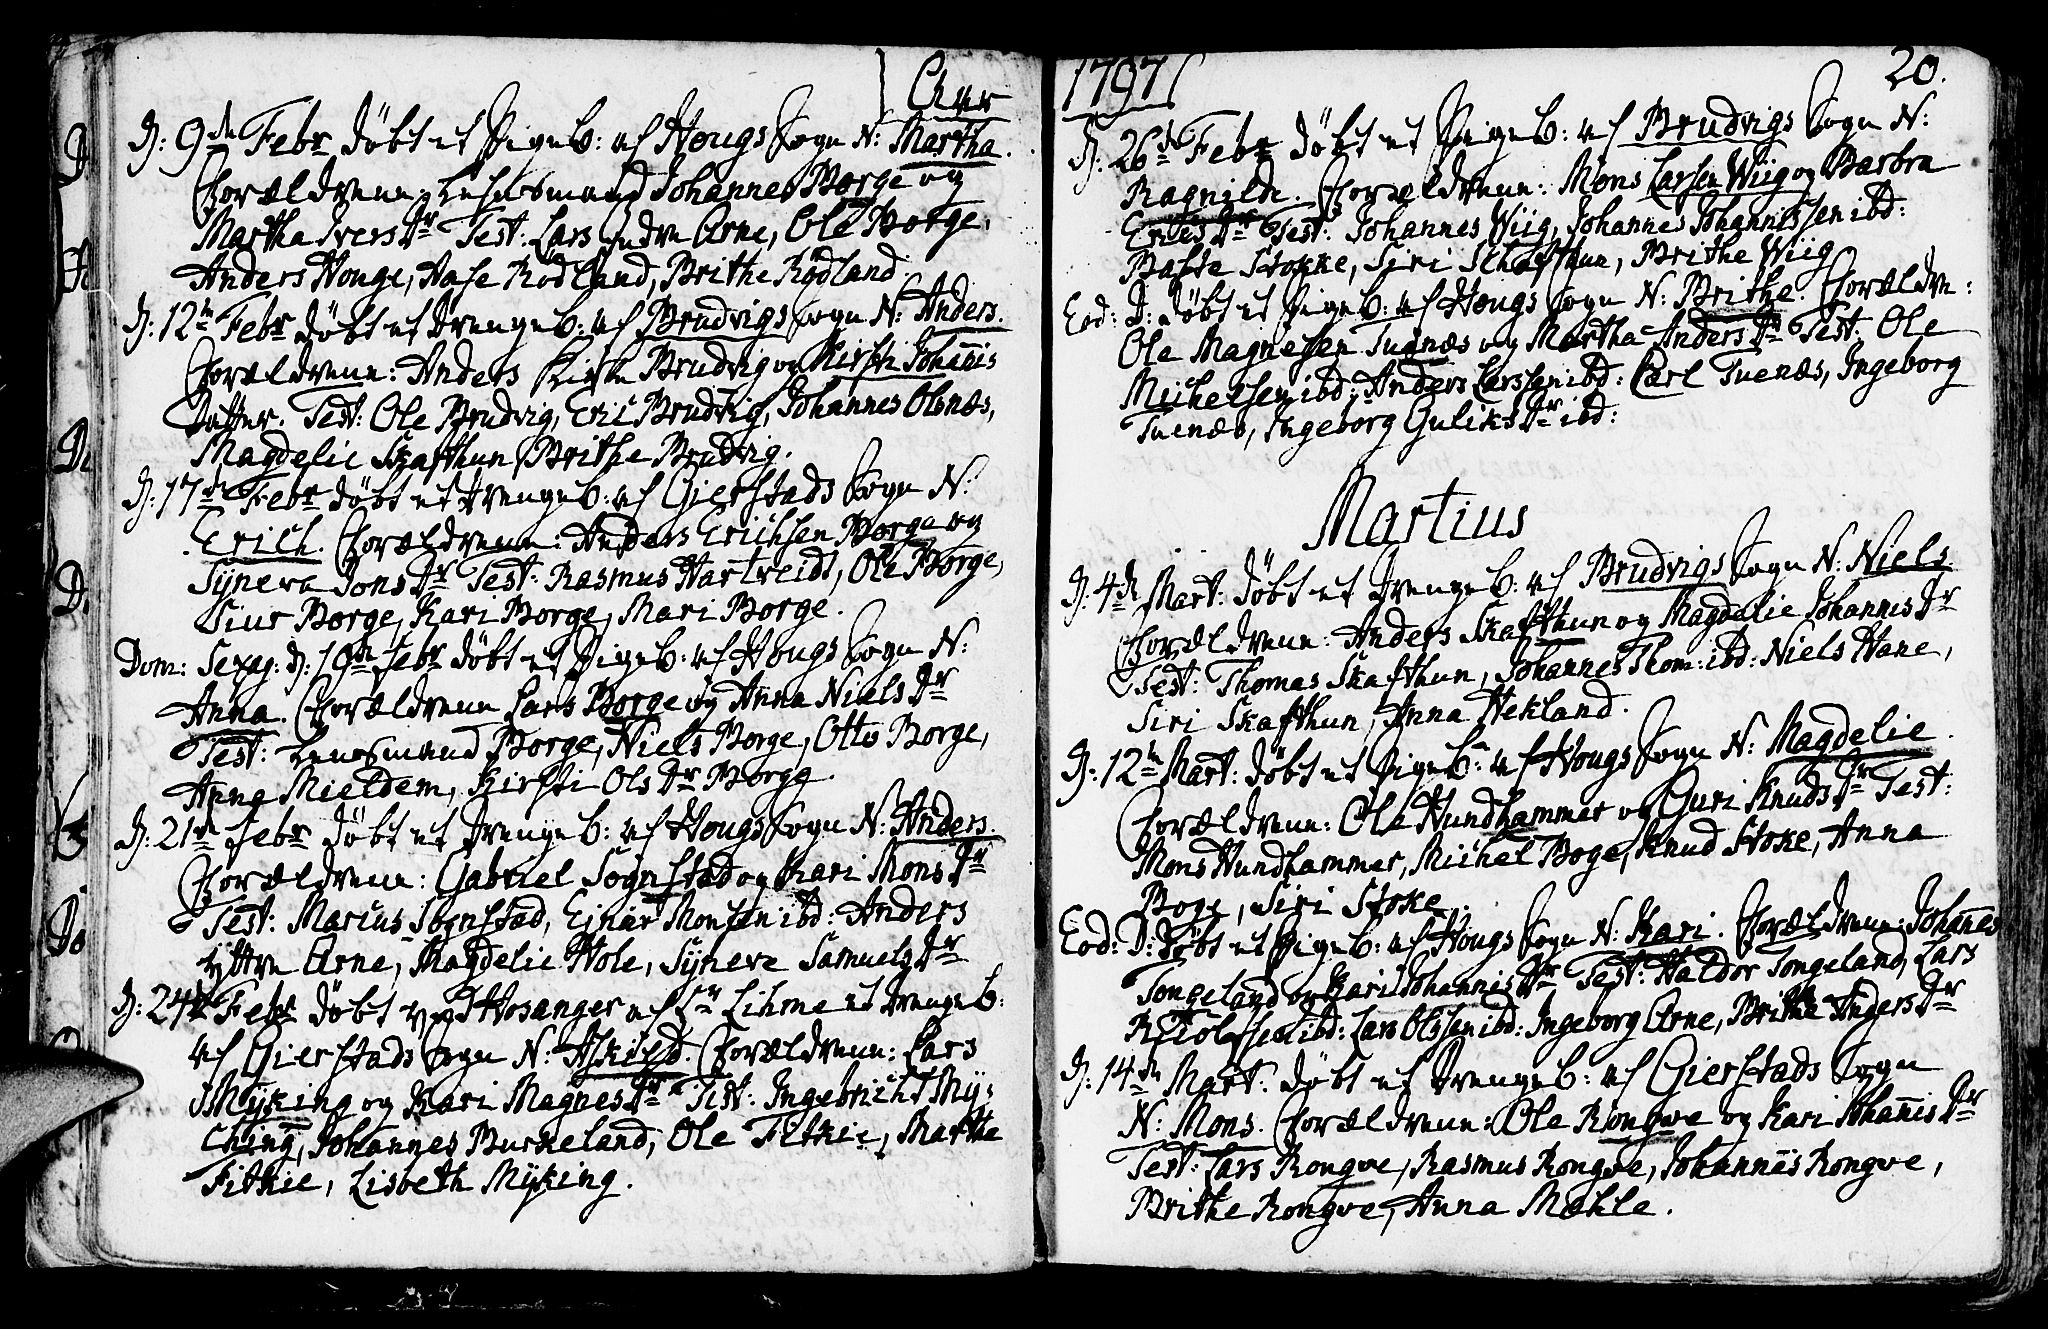 Aar
D: 9de Febr døbt et Pigeb: af Hougs Sogn N: Martha.
Forældrene: Lehnsmand Johannes Borge og
Martha IversDr Test: Lars Indre Arne, Ole Borge,
Anders Houge, Aase Rødland, Brithe Rødland.
D: 12te Febr døbt et Drengeb: af Brudvigs Sogn N: Anders.
Forældrene: Anders Brudvig og Kirsti Johannis
Datter. Test: Ole Brudvig, Eric Brudvig, Johannes Olsnæs,
Magdelie Skafthun, Brithe Brudvig.
D: 17de Febr døbt et Drengeb: af Gierstads Sogn N:
Erich. Forældrene: Anders Erichsen Borge og
Syneva JonsDr Test: Rasmus Hartveidt, Ole Borge,
Siur Borge, Kari Borge, Mari Borge.
Dom: Sexag: d: 19de Febr døbt et Pigeb: af Hougs Sogn N:
Anna. Forældrene Lars Borge og Anna NielsDr
Test: Lensmand Borge, Niels Borge, Otto Borge,
Anna Mieldem, Kirsti OlsDr Borge.
D: 21de Febr døbt et Drengeb: af Hougs Sogn N: Anders.
Forældrene: Gabriel Sognstad og Kari MonsDr
Test: Marcus Sognstad, Ejnar Monsen ibd: Anders
yttre Arne, Magdelie Hole, Syneve SamuelsDr
D: 24de Febr døbt paa Hosanger af Hr Lihme et Drengeb:
af Gierstads Sogn N: Askild. Forældrene: Lars
Myking og Kari MagnesDr Test: Ingebricht My-
ching, Johannes Burkeland, Ole Fitkie, Marthe
Fitkie, Lisbeth Myking.
1797
20.
D: 26de Febr døbt et Pigeb: af Brudvigs Sogn N:
Ragnilde. Forældrene: Mons Larsen Wiig og Barbra
EricsDr Test: Johannes Wiig, Johannes Johannissen ibd:
Baste Stokke, Siri Schafthun, Brithe Wiig
Eod: D: døbt et Pigeb: af Hougs Sogn N: Brithe. Forældre:
Ole Magnesen Tuenæs og Martha AndersDr Test: Ole
Michelsen ibd: Anders Larssen ibd: Carl Tuenæs, Ingeborg
Tuenæs, Ingeborg GuliksDr ibd:
Martius
D: 4de Mart: døbt et Drengeb: af Brudvigs Sogn N: Niels
Forældrene: Anders Skafthun og Magdelie JohannisDr
Test: Thomas Skafthun, Johannes Thom: ibd: Niels Hane,
Siri Skafthun, Anna Hekland.
D: 12te Mart: døbt et Pigeb: af Hougs Sogn N: Magdelie.
Forældrene: Ole Hundhammer og Guri KnudsDr Test:
Mons Hundhammer, Michel Boge, Knud Stoke, Anna
Boge, Siri Stoke.
Eod: D: døbt et Pigeb: af Hougs Sogn N: Kari. Forældrene: Johannes
Tongeland og Kari JohannisDr Test: Haldor Tongeland, Lars
ibd: Lars Olssen ibd: Ingeborg Arne, Brithe AndersDr
D: 14de Mart: døbt et Drengeb: af Gierstads Sogn
N: Mons. Forældrene: Ole Rongve og Kari JohannisDr
Test: Lars Rongve, Rasmus Rongve, Johannes Rongve,
Brithe Rongve, Anna Mæhle.